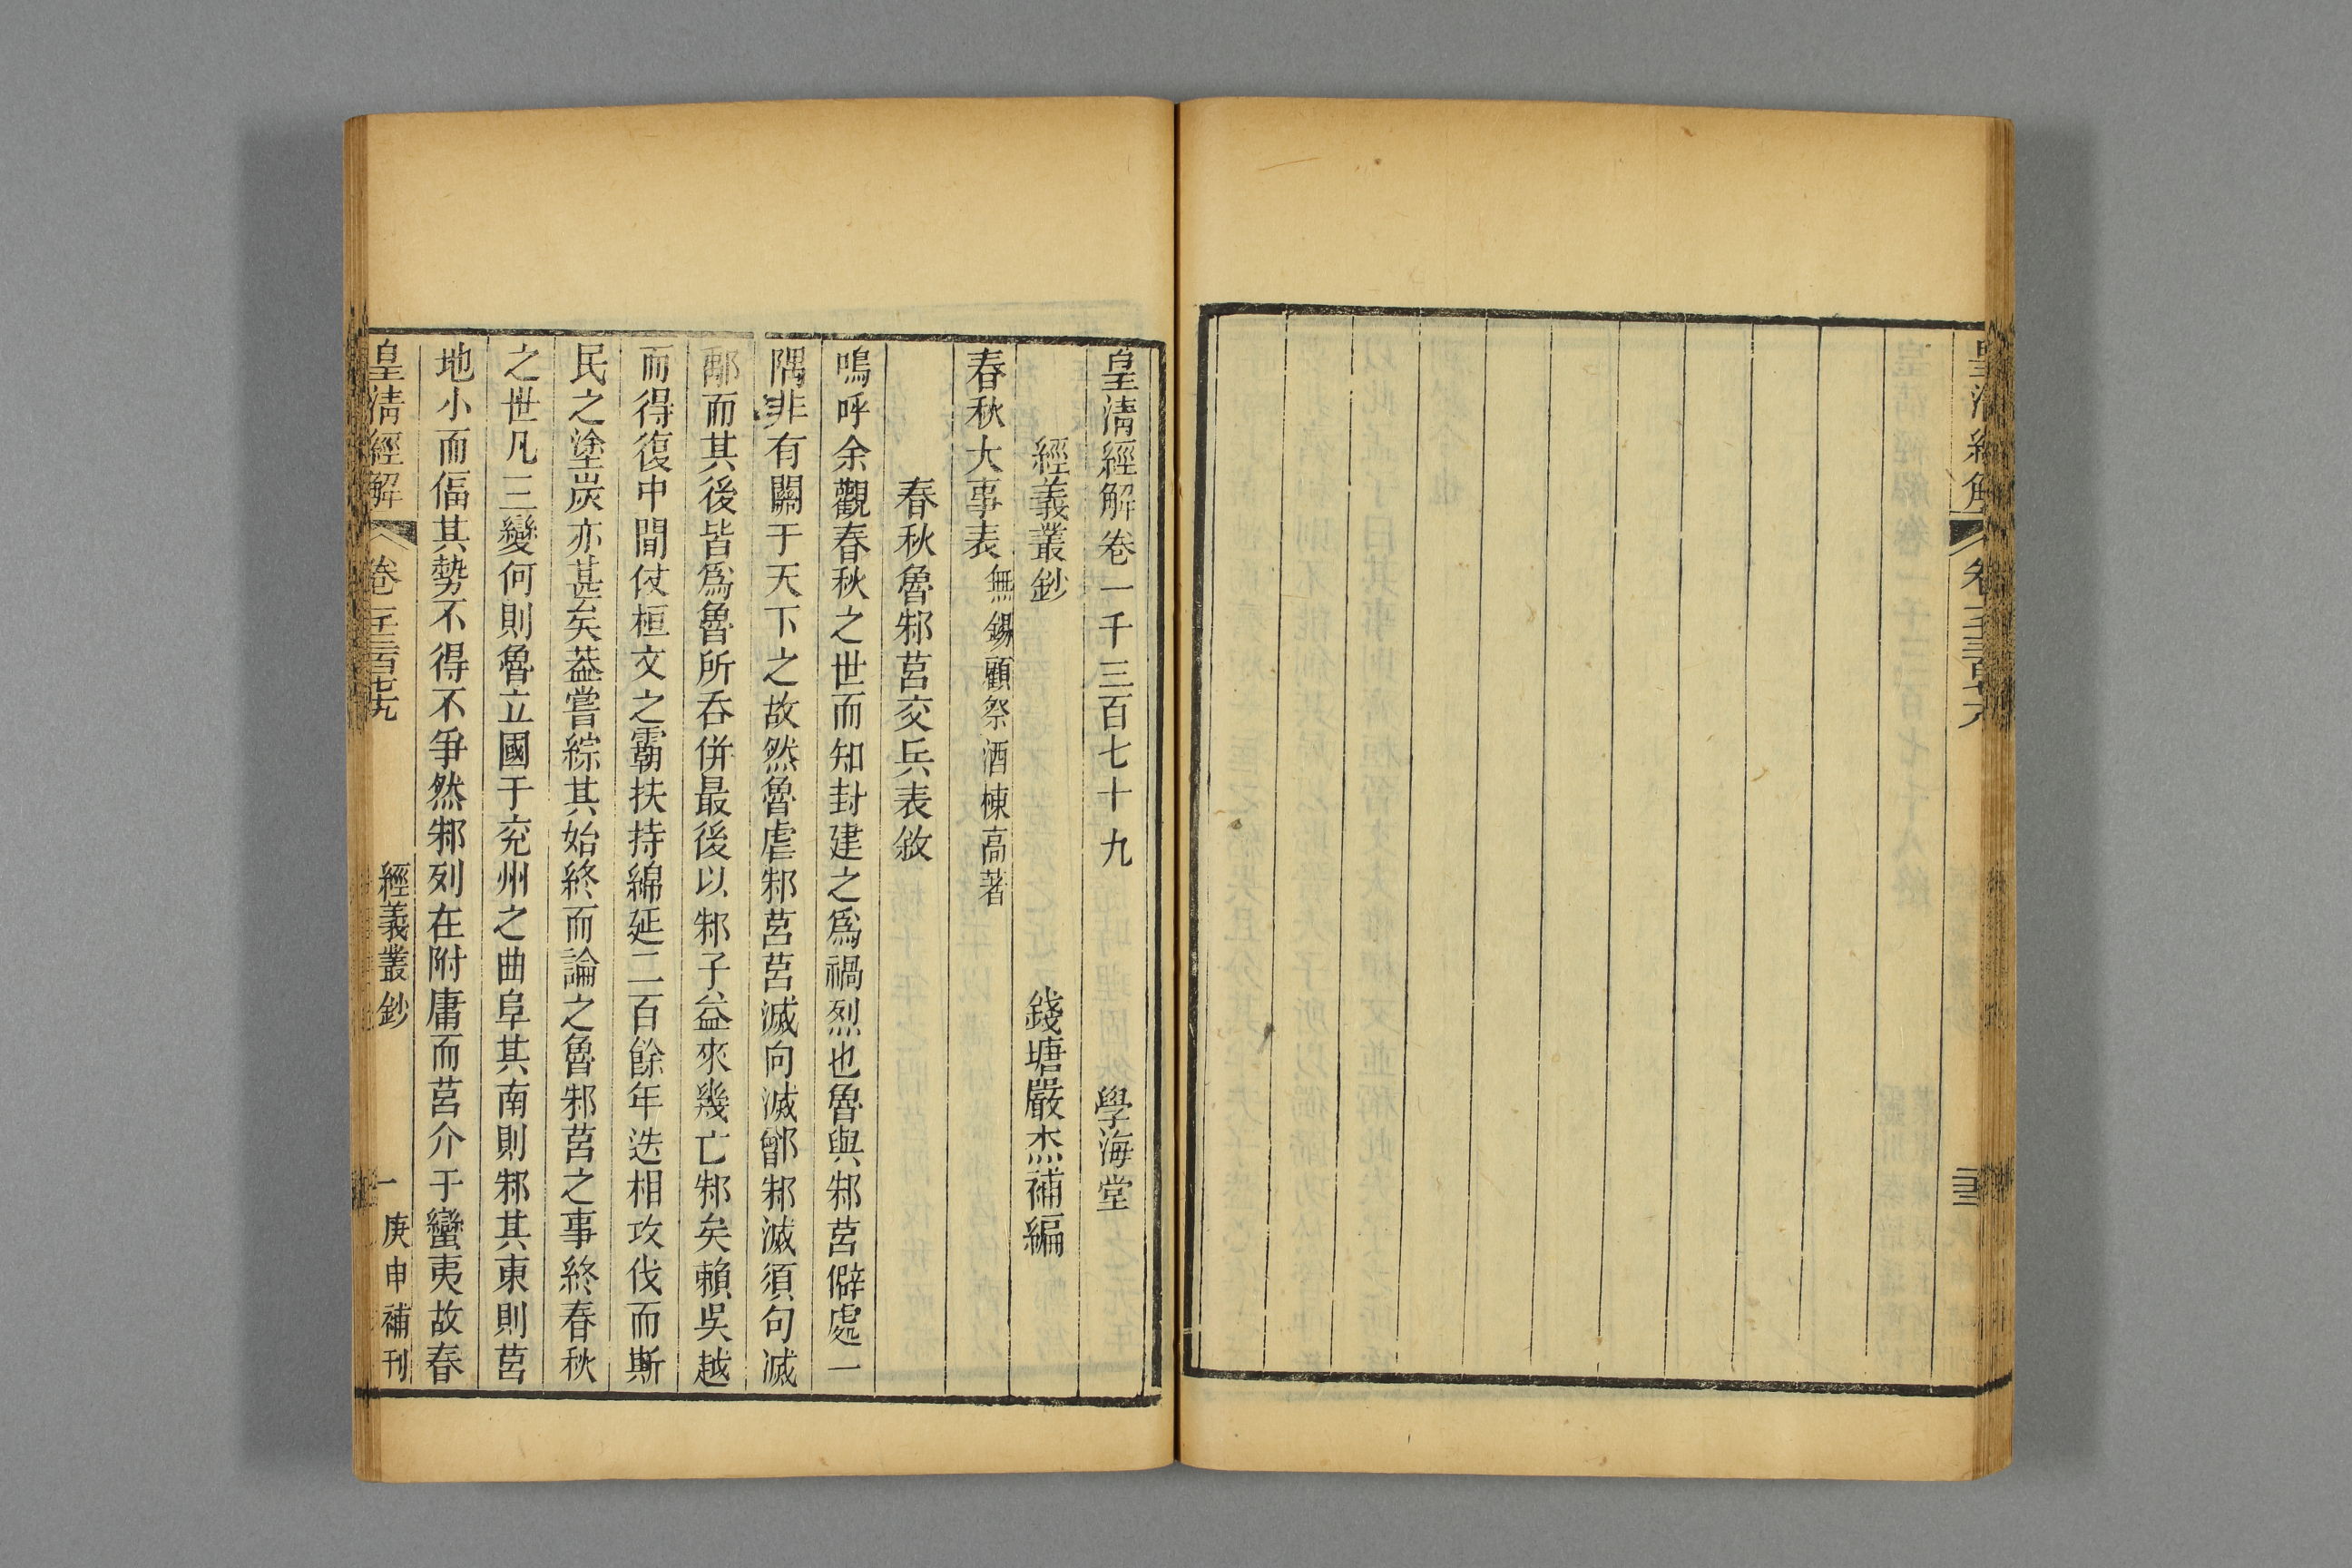 皇清經解
皇清經解卷一千三百七十九 學海堂
經義叢鈔 錢塘嚴杰補編
春秋大事表 無錫顧祭酒棟高著
春秋魯邾莒交兵表敘
嗚呼余觀春秋之世而知封建之爲禍烈也魯與邾莒僻處一
隅非有關于天下之故然魯虐邾莒莒滅向滅鄫邾滅須句滅
鄅而其後皆爲魯所吞併最後以邾子益來幾亡邾矣賴吳越
而得復中間仗桓文之霸扶持綿延二百餘年迭相攻伐而斯
民之塗炭亦甚矣葢嘗綜其始終而論之魯邾莒之事終春秋
之世凡三變何則魯立國于兖州之曲阜其南則邾其東則莒
地小而偪其勢不得不爭然邾列在附庸而莒介于蠻夷故春
皇清經解 卷一千三百七十九 經義叢鈔 一 庚申補刊